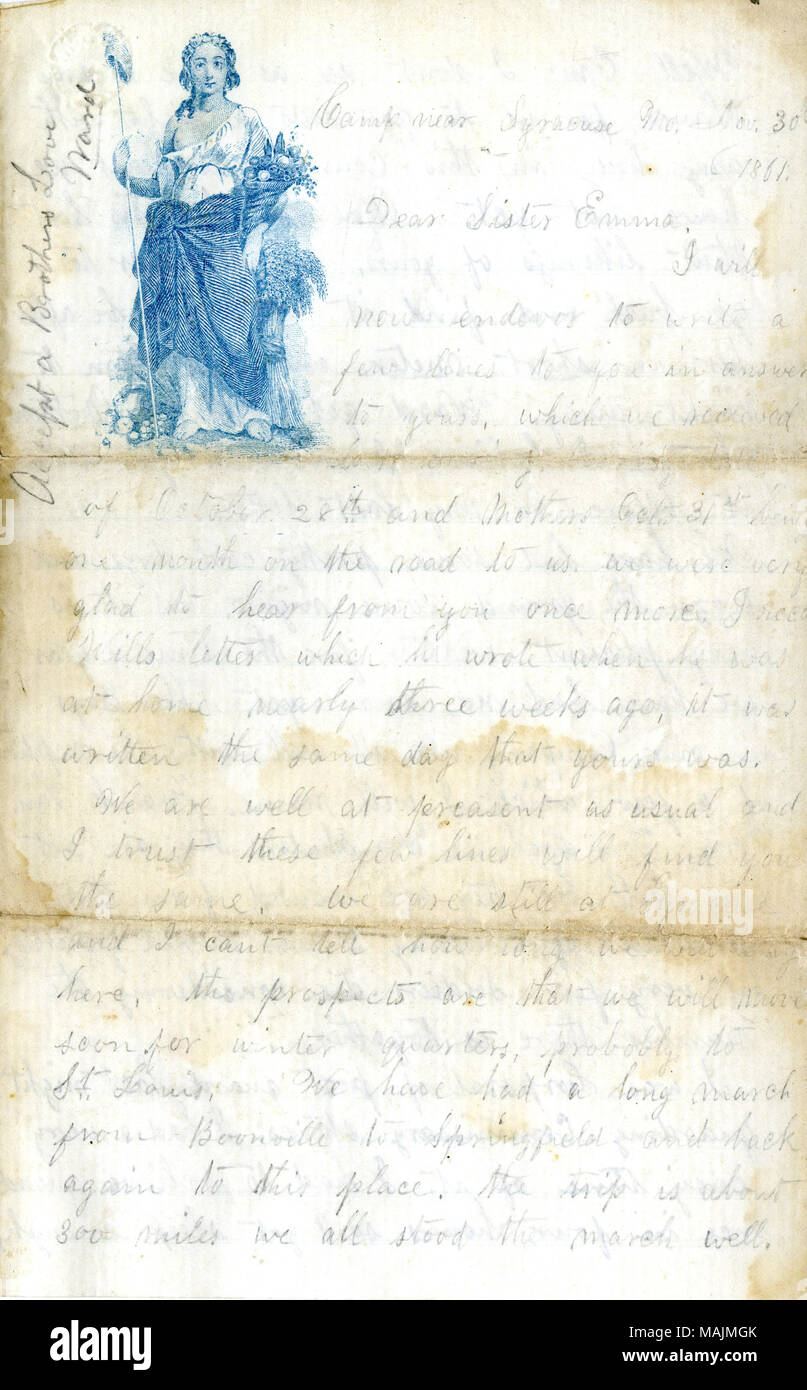 Camp near Syracuse Mo. Nov. 30
1861.
Dear Sister Emma,
I will
now endevor to write a
few lines to you in answer
to yours, which we received
of October 28th and Mothers Oct 31st being
one month on the road to us. we were very
glad to hear from you once more. I recd
Wills letter which he wrote when he was
at home nearly three weeks ago, it was
written the same day that yours was.
We are well at preasent as usual and
I trust these few lines will find you
the same. We are still at
and I cant tell how long we
here. the prospects are that we will move
soon for winter quarters, probobly to
St. Louis. We have had a long march
from Boonville to Springfield and back
again to this place. the trip is about
300 miles we all stood the march well.
Accept a Brothers Love
Ward
alamy
a
alamy
Image ID: MAJMGK
www.alamy.com